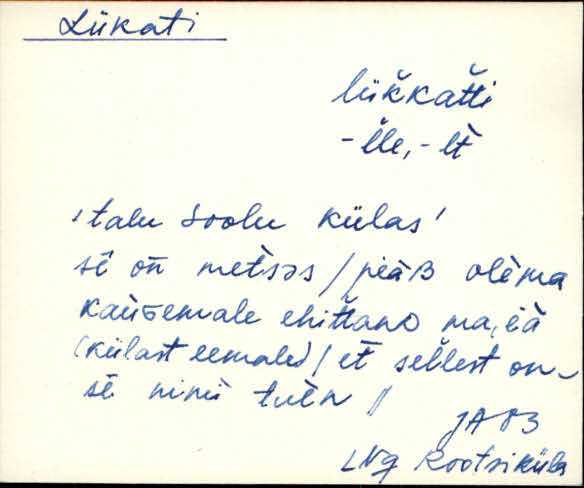 Liikati
liikkatti
-lle, -lt
'talu Soolu külas'
sè on metsas / piàB olema
kaùGemale ehittanD ma,ja
(külast eemale) / et sellest on
se nimi tuln //
JA83
LNg Rootsiküla